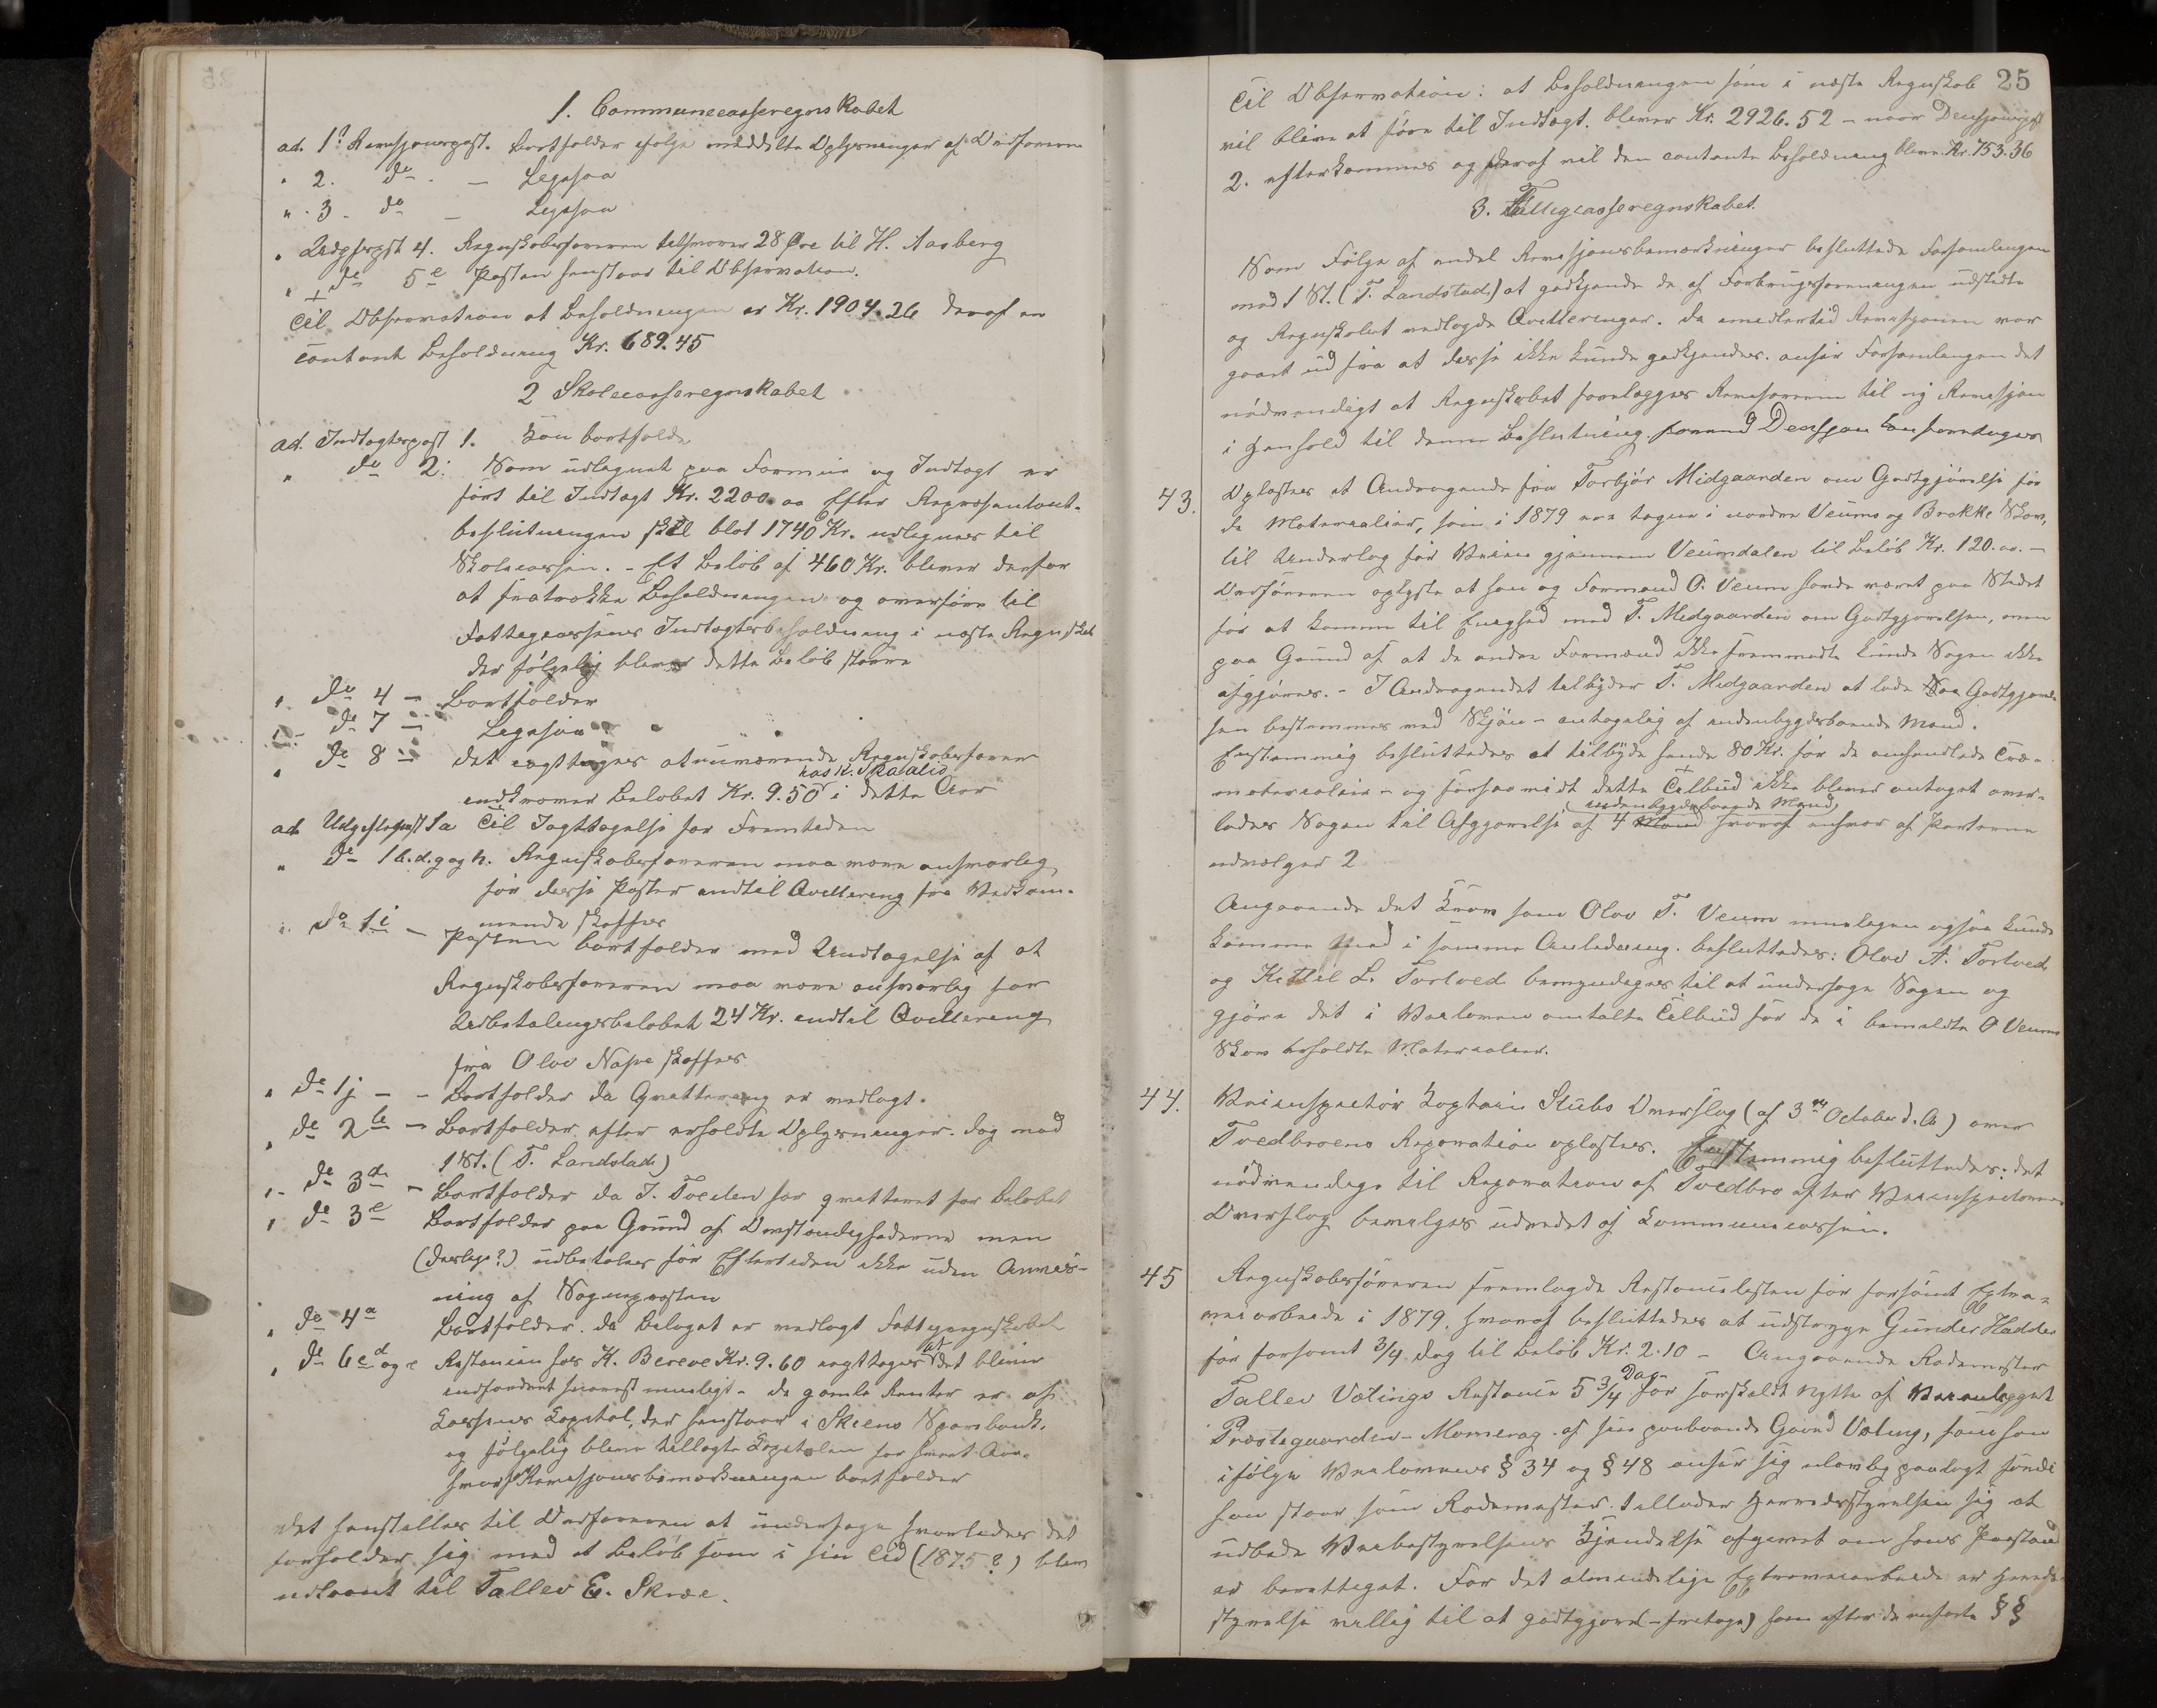 1. Communecasseregnskabet
ad. 1ª Revisjonspost. bortfalder ifølge meddelte Oplysninger af Ordføreren
" 2. do - — Ligesaa
" 3. do — Ligesaa
" Udgiftspst 4. Regnskabsføreren tilsvarer 28 Øre til H. Aasberg
" do 5e Posten henstaar til Observation.
Til Observation at Beholdningen er Kr. 1904.26 deraf en
contant Beholdning Kr. 689.45
2 Skolecasseregnskabet
ad. Indtægtspost 1. Kan bortfalde
" do 2: Som udlignet paa Formue og Indtægt er
ført til Indtægt Kr. 2200.00 Efter Repræsentant-
beslutningen skal blot 1740 Kr. udlignes til
Skolecassen. - Et Beløb af 460 Kr. bliver derfor
at fratrække Beholdningen og overføre til
Fattigcassens Indtægtsbeholdning i næste Regnskab
der følgelig bliver dette Beløb større
" do 4 — Bortfalder
" do 7 — Ligesaa
" do 8 — det iagttages at nuværende Regnskabsfører
hos K. Skaalid
indkræver Beløbet Kr. 9.50 i dette Aar
ad. Udgiftspost 1a Til Iagttagelse for Fremtiden
" do 1b.d.g og h. Regnskabsføreren maa være ansvarlig
for disse Poster indtil Qvittering fra Vedkom-
mende skaffes
" do 1i — Posten bortfalder med Undtagelse af at
Regnskabsføreren maa være ansvarlig for
Udbetalingsbeløbet 24 Kr. indtil Qvittering
fra Olav Nape skaffes
" do 1j — - Bortfalder da Qvittering er vedlagt.
" do 2b — Bortfalder efter erholdte Oplysninger. dog mod
1 St. (T. Landstad)
" do 3d — Bortfalder da J. Tveiten har qvitteret for Beløbet
" do 3e Bortfalder paa Grund af Omstændighederne men
(deslige?) udbetales for Eftertiden ikke uden Anvis-
ning af Sognepresten
" do 4a Bortfalder. da Belaget er vedlagt Fattigregnskabet
" do 6c d og e Restancen hos K. Bereve Kr. 9.60 iagttages at det bliver
indfordret snarest muligt - de gamle Renter er af
Kassens Kapital, der henstaar i Skiens Sparebank.
og følgelig bleve tillagte Kapitalen for hvert Aar.
hvorfor Revisjonsbemærkningen bortfalder
Det henstilles til Ordføreren at undersøge hvorledes det
forholder sig med et Beløb som i sin Tid (1875?) blev
udlaant til Tallev E. Skree.
25
Til Observation: at Beholdningen som i næste Regnskab
vil blive at føre til Indtægt. bliver Kr. 2926.52 - naar Decisjonspost
2. efterkommes og deraf vil den contante Beholdning blive Kr. 753.36
3. Fattigcasseregnskabet.
Som Følge af endel Revisjonsbemærkninger besluttede Forsamlingen
mod 1 St. (T. Landstad) at godkjende de af Forbrugsforeningen udstedte
og Regnskabet vedlagde Qvitteringer. da imidlertid Revisjonen var
gaaet ud fra at disse ikke kunde godkjendes. anser Forsamlingen det
nødvendigt at Regnskabet forelægges Revisorerne til ny Revisjon
i Henhold til denne Beslutning. forend Decisjon kan foretages
43. Oplæstes et Andragende fra Torbjør Midgaarden om Godtgjørelse for
de Materialier, som i 1879 ere tagne i nordre Veums og Brokke Skov,
til Underlag for Veien gjennem Veumdalen til Beløb Kr. 120.00. —
Ordføreren oplyste at han og Formand O. Veum havde været paa Stedet
for at komme til Enighed med T. Midgaarden om Godtgjørelsen, men
paa Grund af at de andre Formænd ikke fremmødte kunde Sagen ikke
afgjøres. - I Andragendet tilbyder T. Midgaarden at lade Godtgjørel-
sen bestemmes ved Skjøn - antagelig af indenbygdsboende Mænd.
Enstemmig besluttedes at tilbyde hende 80 Kr. for de omhandlede Træ-
materialier - og forsaavidt dette Tilbud ikke bliver antaget over-
(indenbygdsboende Mænd)
lades Sagen til Afgjørelse af 4 Mænd hvoraf enhver af Parterne
udvælger 2
Angaaende det Krav som Olav T. Veum muligens ogsaa kunde
komme med i samme Anledning. besluttedes: Olav A. Tortved
og Kittil L. Tortved bemyndiges til at undersøge Sagen og
gjøre det i Veiloven omtalte Tilbud for de i bemeldte O Veums
Skov erholdte Materialier.
44. Veiinspectør Kaptein Stubs Overslag (af 3die October d. A.) over
Tvedbroens Reparation oplæstes. Enstemmig besluttedes: det
nødvendige til Reparation af Tvedbro efter Veiinspectørens
Overslag bevilges udredet af Kommunecassen.
45 Regnskabsføreren fremlagde Restancelisten for forsømt Extra-
veiarbeide i 1879. hvoraf besluttedes at udstryge Gunder Hadder
for forsømt 3/4 dag til Beløb Kr. 2.10 - Angaaende Rodemester
Tallev Vølings Restance 5 3/4 Dag for særskilt Nytte af Veianlægget
Præstegaarden-Momrag. af sin paaboende Gaard Vøling, som han
ifølge Veilovens § 34 og § 48 anser sig ulovlig paalagt fordi
han staar som Rodemester. tillader Herredsstyrelsen sig at
udbede Veibestyrelsens Kjendelse afgivet om hans Paastand
er berettiget. For det almindelige Extraveiarbeide er Herreds-
styrelse villig til at godtgjøre (- fritage) ham efter de anførte § §